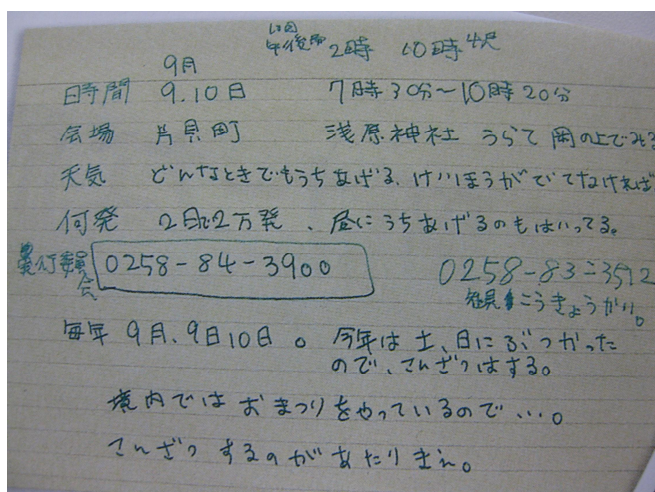 午後 2時 10時
9月
日時間 9.10日 7時30分~10時20分
会場 片貝町 浅原神社 うらて 岡の上でみる
天気 どんなときでもうちあげる、けいほうがでてなければ
何発 2日で2万発、昼にうちあげるのもはいってる。
委員会 0258-84-3900 0258-83-3512
こうきょうかり。
毎年 9月、9日10日。 今年は土、日にぶつかった
ので、こんざつはする。
境内ではおまつりをやっているので…。
こんざつするのがあたりまえ。